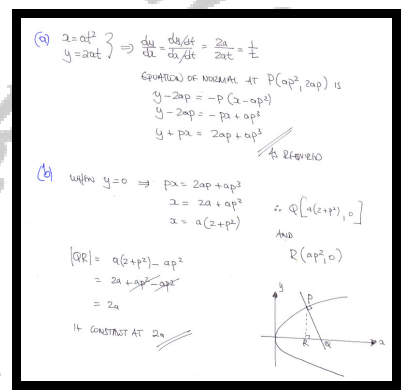 (a) x = at² } ⇒ dy/dx = dy/dt / dx/dt = 2a / 2at = 1/t
y = 2at
EQUATION OF NORMAL AT P(ap², 2ap) IS
y - 2ap = -p (x - ap²)
y - 2ap = - px + ap³
y + px = 2ap + ap³
AS REQUIRED
(b) WHEN y = 0 ⇒ px = 2ap + ap³
x = 2a + ap²
x = a(2+p²)
∴ Q[a(2+p²), 0]
AND
R(ap², 0)
|QR| = a(2+p²) - ap²
= 2a + ap² - ap²
= 2a
IE CONSTANT AT 2a
y
P
R Q x